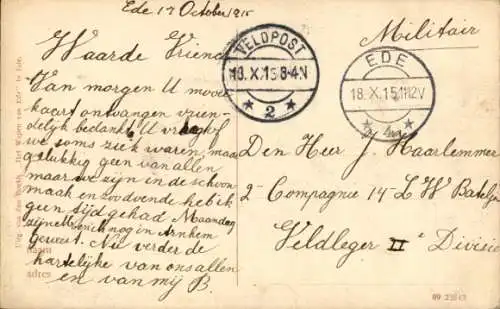 Ede 17 October 1915
Militair
Waarde Vriend
Van morgen U mooie
kaart ontvangen vrien-
delijk bedankt. U vraagt of
we soms ziek waren, maar
gelukkig geen van allen
maar we zijn in de schoon
maak en zoodoende heb ik
geen tijd gehad Maandag
zijn nog in Arnhem
geweest. Nu verder de
hartelijke van ons allen
en van mij B.
VELDPOST
18.X.15 8-4N
2
EDE
18.X.15 1112V
Den Heer J. Haarlemmer
2e Compagnie 14 L W Bataljon
Veldleger II Divisie
adres